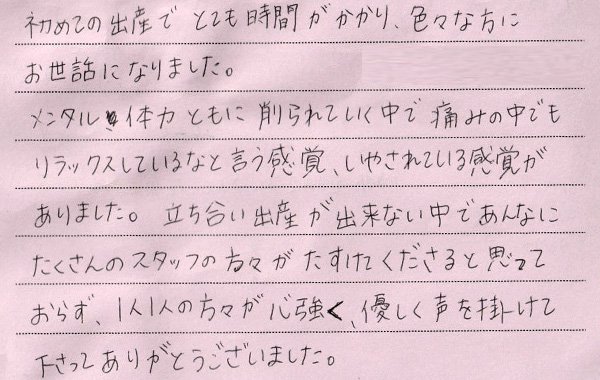 初めての出産でとても時間がかかり、色々な方に
お世話になりました。
メンタル体力ともに削られていく中で痛みの中でも
リラックスしているなと言う感覚、いやされている感覚が
ありました。立ち合い出産が出来ない中であんなに
たくさんのスタッフの方々がたすけてくださると思って
おらず、1人1人の方々が心強く、優しく声を掛けて
下さってありがとうございました。